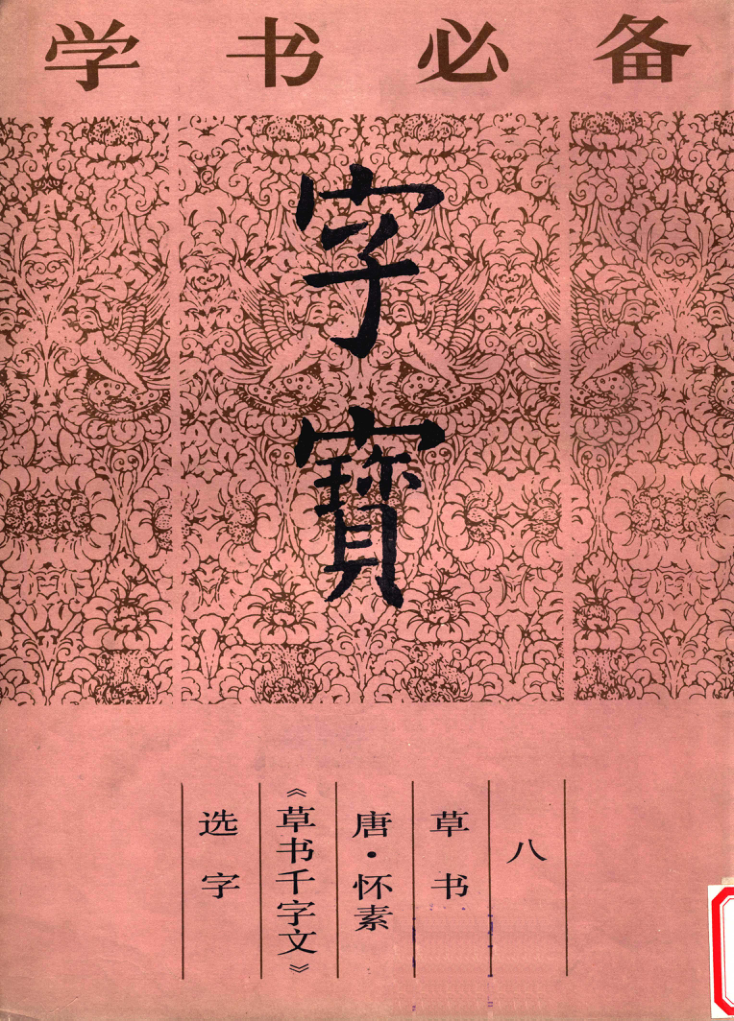 学书必备
字寶
八
草书
唐·怀素
《草书千字文》
选字